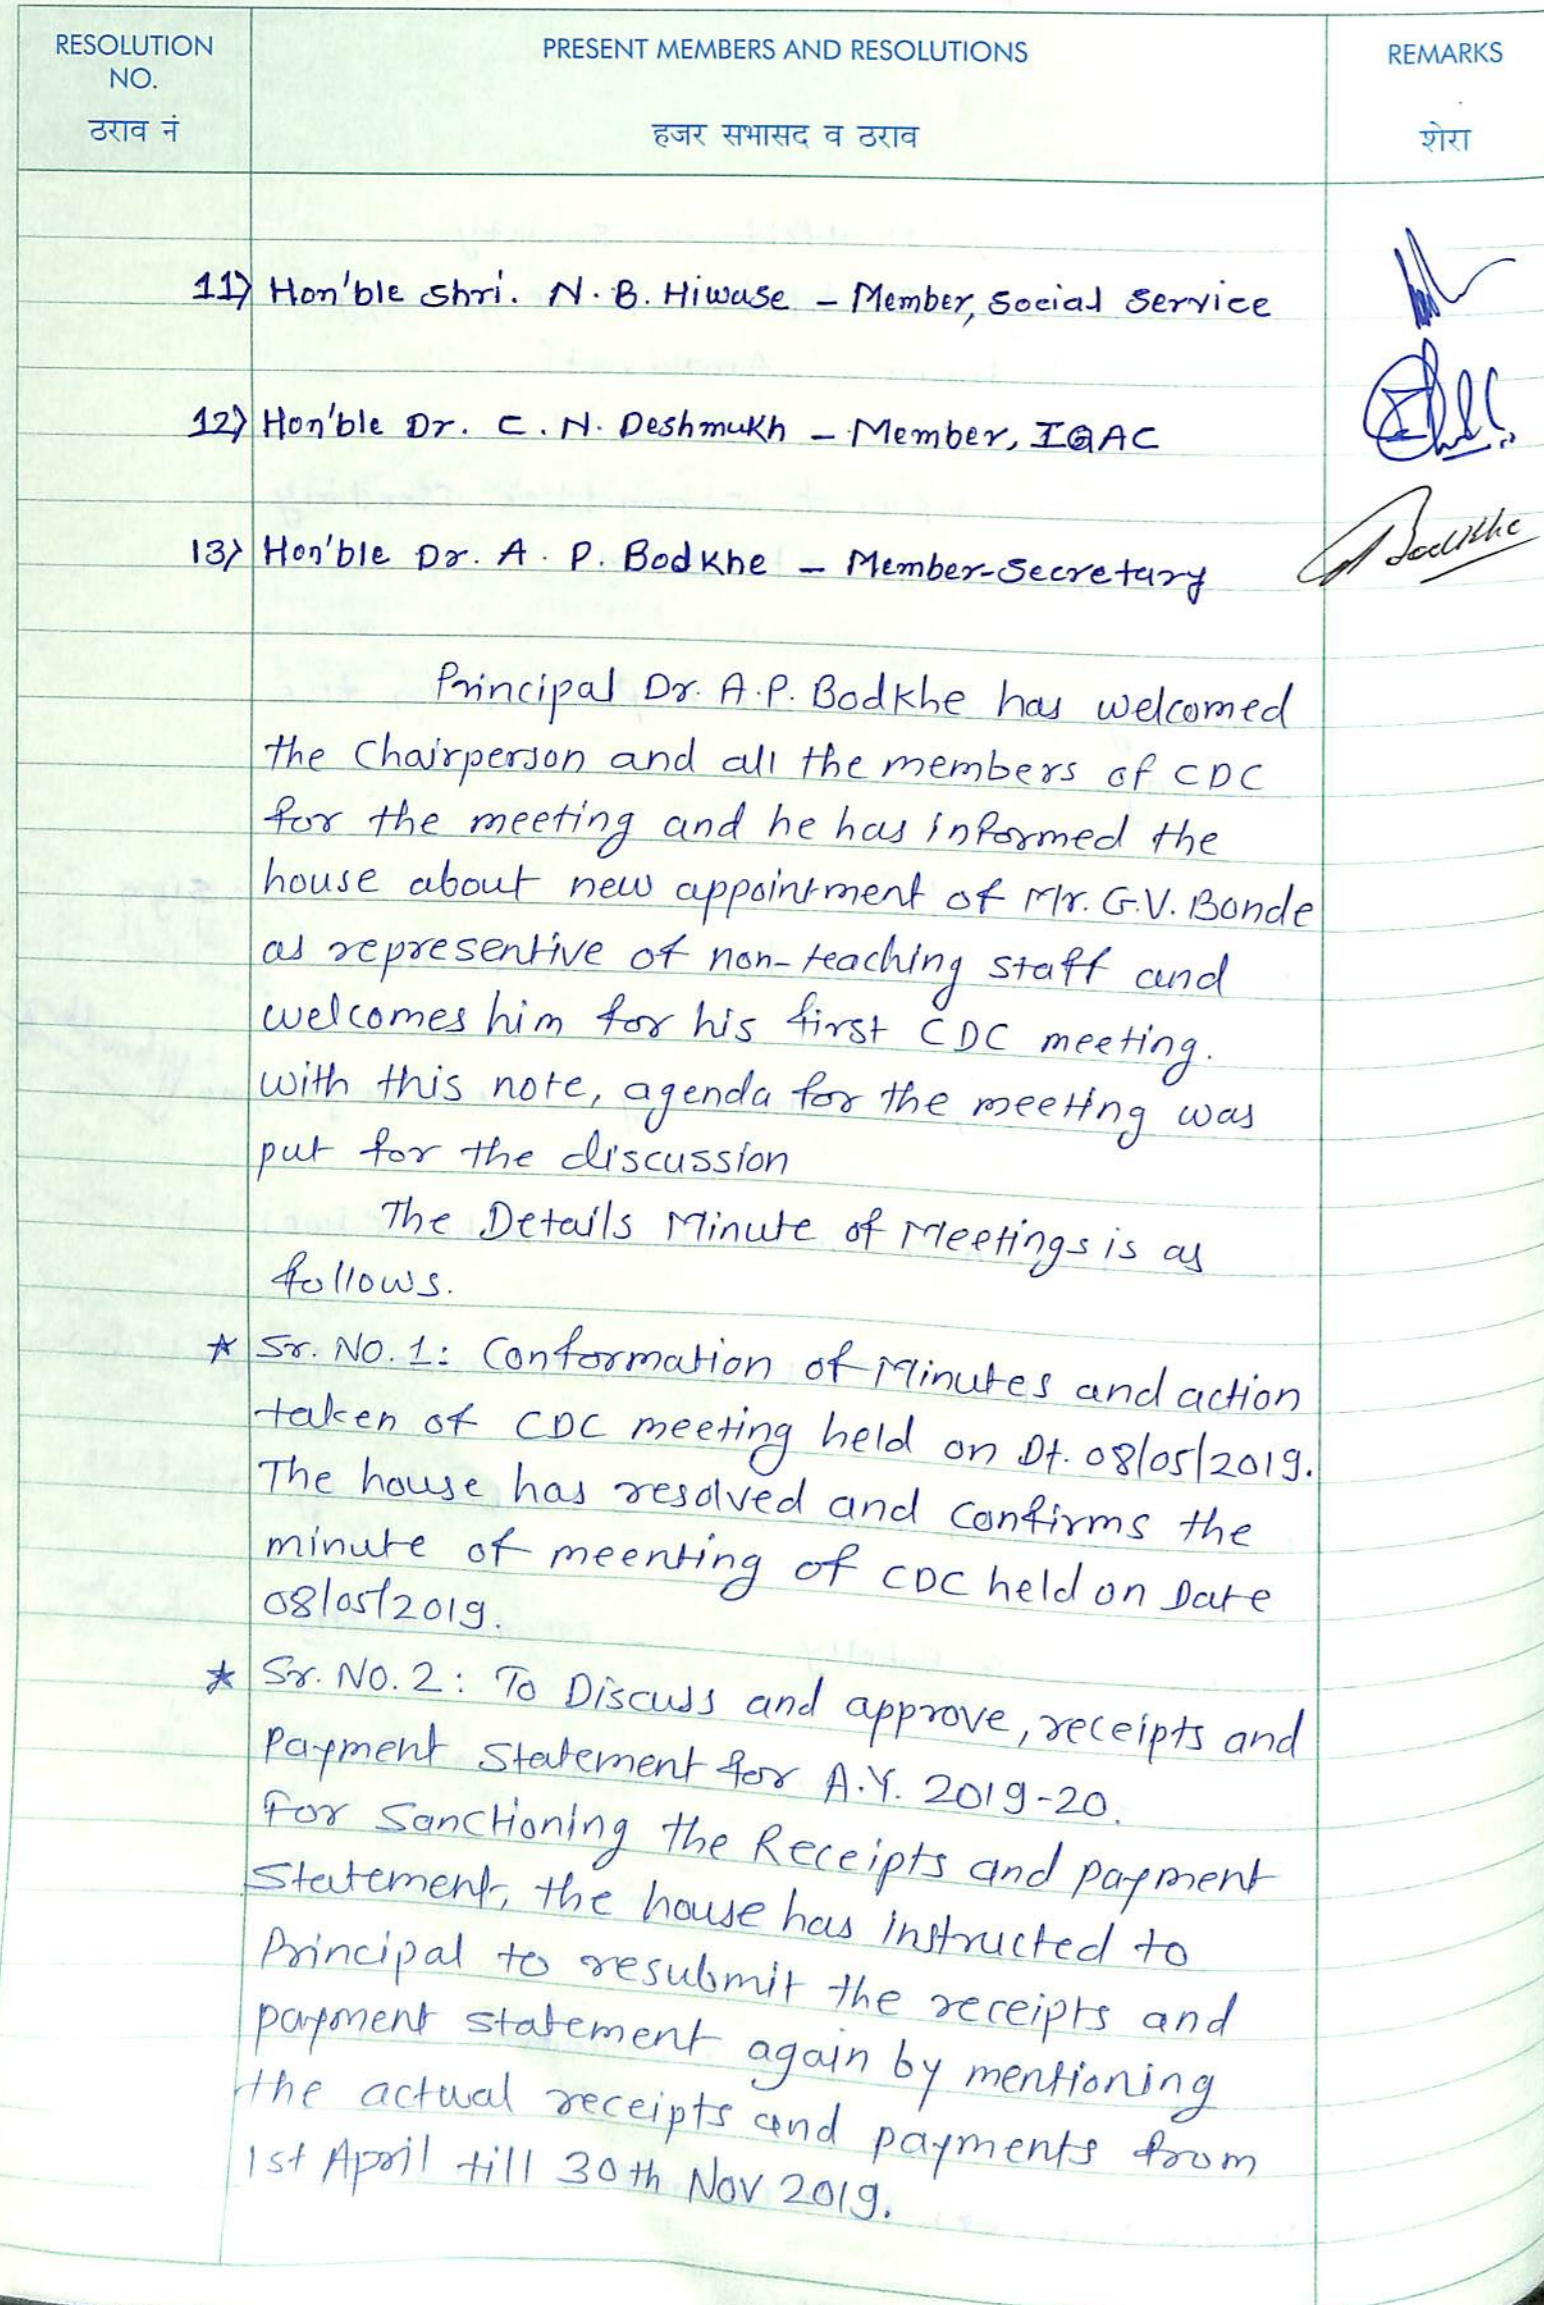 RESOLUTION NO.
ठराव नं
PRESENT MEMBERS AND RESOLUTIONS
हजर सभासद व ठराव
REMARKS
शेरा
11) Hon'ble Shri. N. B. Hiwase - Member, Social Service
12) Hon'ble Dr. C. N. Deshmukh - Member, IQAC
13) Hon'ble Dr. A. P. Bodkhe - Member-Secretary
Bodkhe
Principal Dr. A.P. Bodkhe has welcomed
the Chairperson and all the members of CDC
for the meeting and he has informed the
house about new appointment of Mr. G.V. Bonde
as representive of non-teaching staff and
welcomes him for his first CDC meeting.
with this note, agenda for the meeting was
put for the discussion
The Details Minute of Meetings is as
follows.
* Sr. NO. 1: Conformation of Minutes and action
taken of CDC meeting held on Dt. 08/05/2019.
The house has resolved and confirms the
minute of meenting of CDC held on Date
08/05/2019.
* Sr. NO. 2: To Discuss and approve, receipts and
Payment Statement for A.Y. 2019-20.
For Sanctioning the Receipts and payment
Statement, the house has instructed to
Principal to resubmit the receipts and
payment statement again by mentioning
the actual receipts and payments from
1st April till 30th Nov 2019.